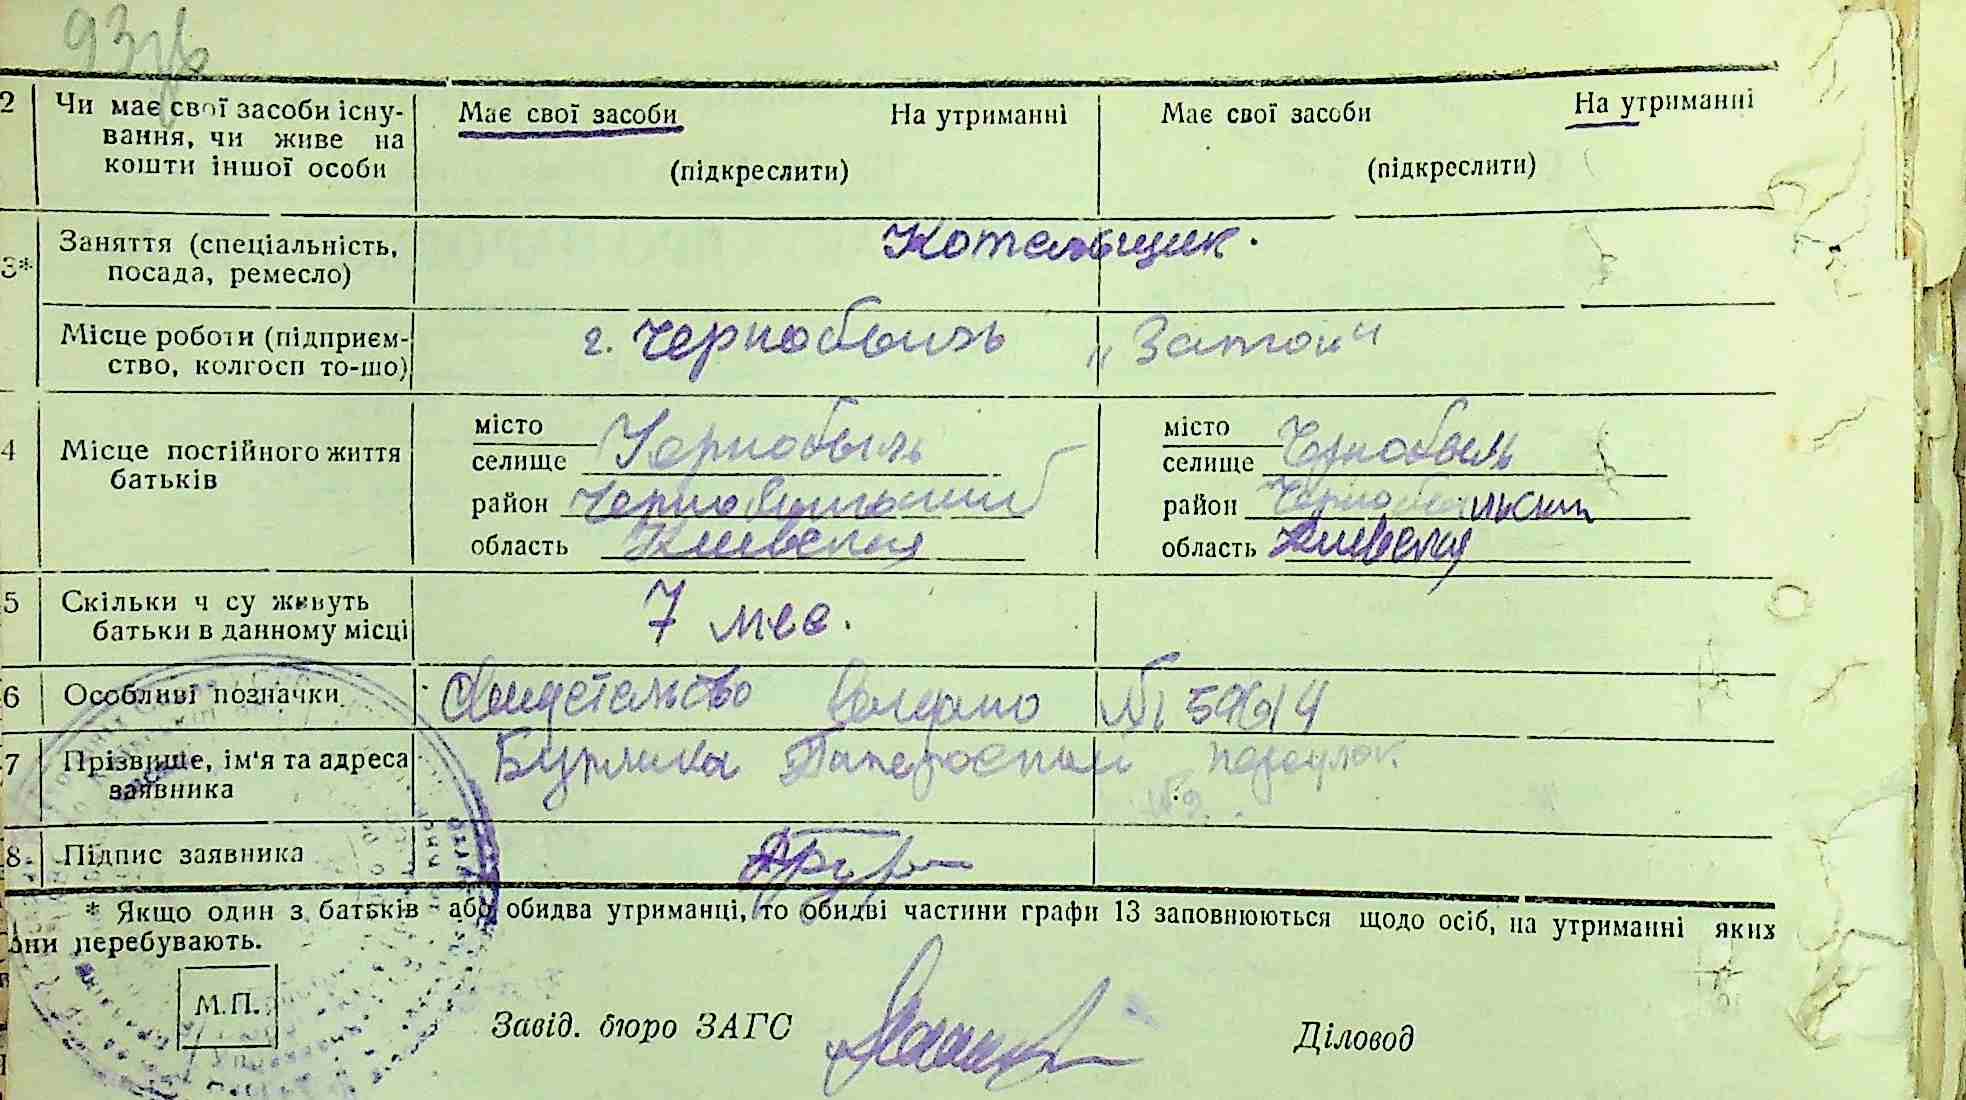 93зв
2 Чи має свої засоби існу- Має свої засоби На утриманні Має свої засоби На утриманні
вання, чи живе на
кошти іншої особи (підкреслити) (підкреслити)
3* Заняття (спеціальність, Котельщик.
посада, ремесло)
Місце роботи (підприєм- г. Чернобыль „Затон"
ство, колгосп то-що)
4 Місце постійного життя місто Чернобыль місто Чернобыль
батьків селище селище
район Чернобыльский район Чернобыльский
область Киевская область Киевская
5 Скільки ч су живуть 7 мес.
батьки в данному місці
6 Особливі позначки Свидетельство выдано №
7 Прізвище, ім'я та адреса переулок
заявника
8. Підпис заявника
* Якщо один з батьків або обидва утриманці, то обидві частини графи 13 заповнюються щодо осіб, на утриманні яких
вони перебувають.
М. П.
Завід. бюро ЗАГС Діловод